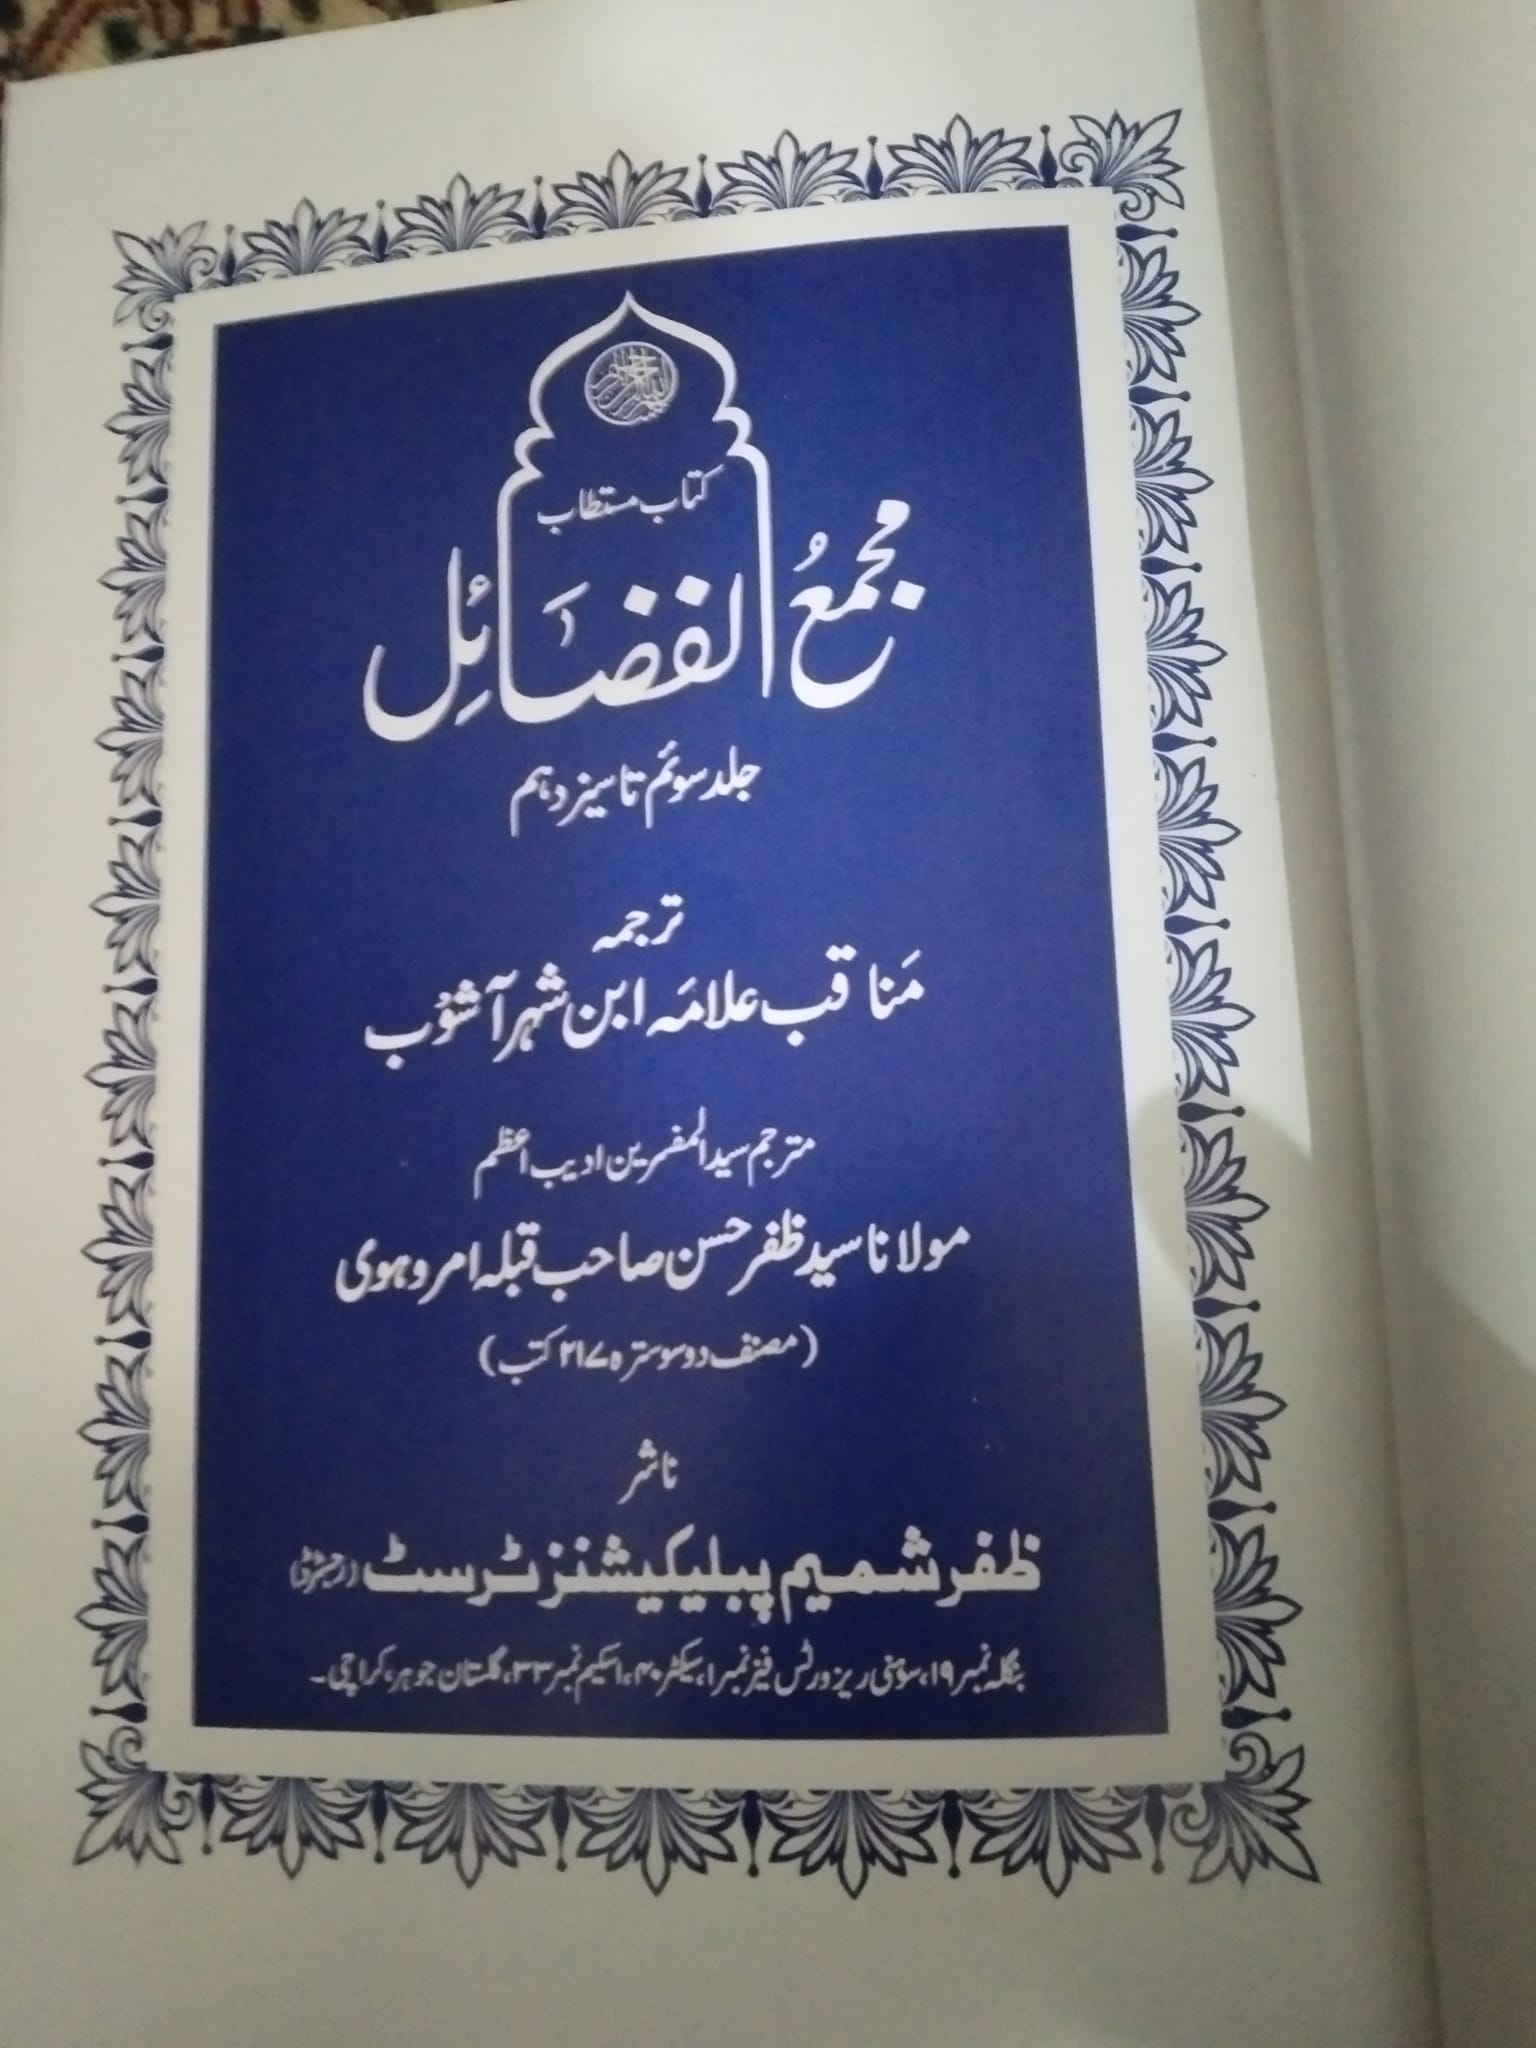 بسم الله الرحمن الرحيم
کتاب مستطاب
مجمعُ الفضَائِل
جلد سوئم تا سیزدہم
ترجمہ
مَناقب علامَہ ابن شہر آشوُب
مترجم سید المفسرین ادیب اعظم
مولانا سید ظفر حسن صاحب قبلہ امروہوی
(مصنف دو سو سترہ ۲۱۷ کتب)
ناشر
ظفر شمیم پبلیکیشنز ٹرسٹ (رجسٹرڈ)
بنگلہ نمبر ۱۹، سوہنی ریزورٹس فیز نمبر ۱، سیکٹر ۴۰، اسکیم نمبر ۳۳، گلستان جوہر، کراچی۔